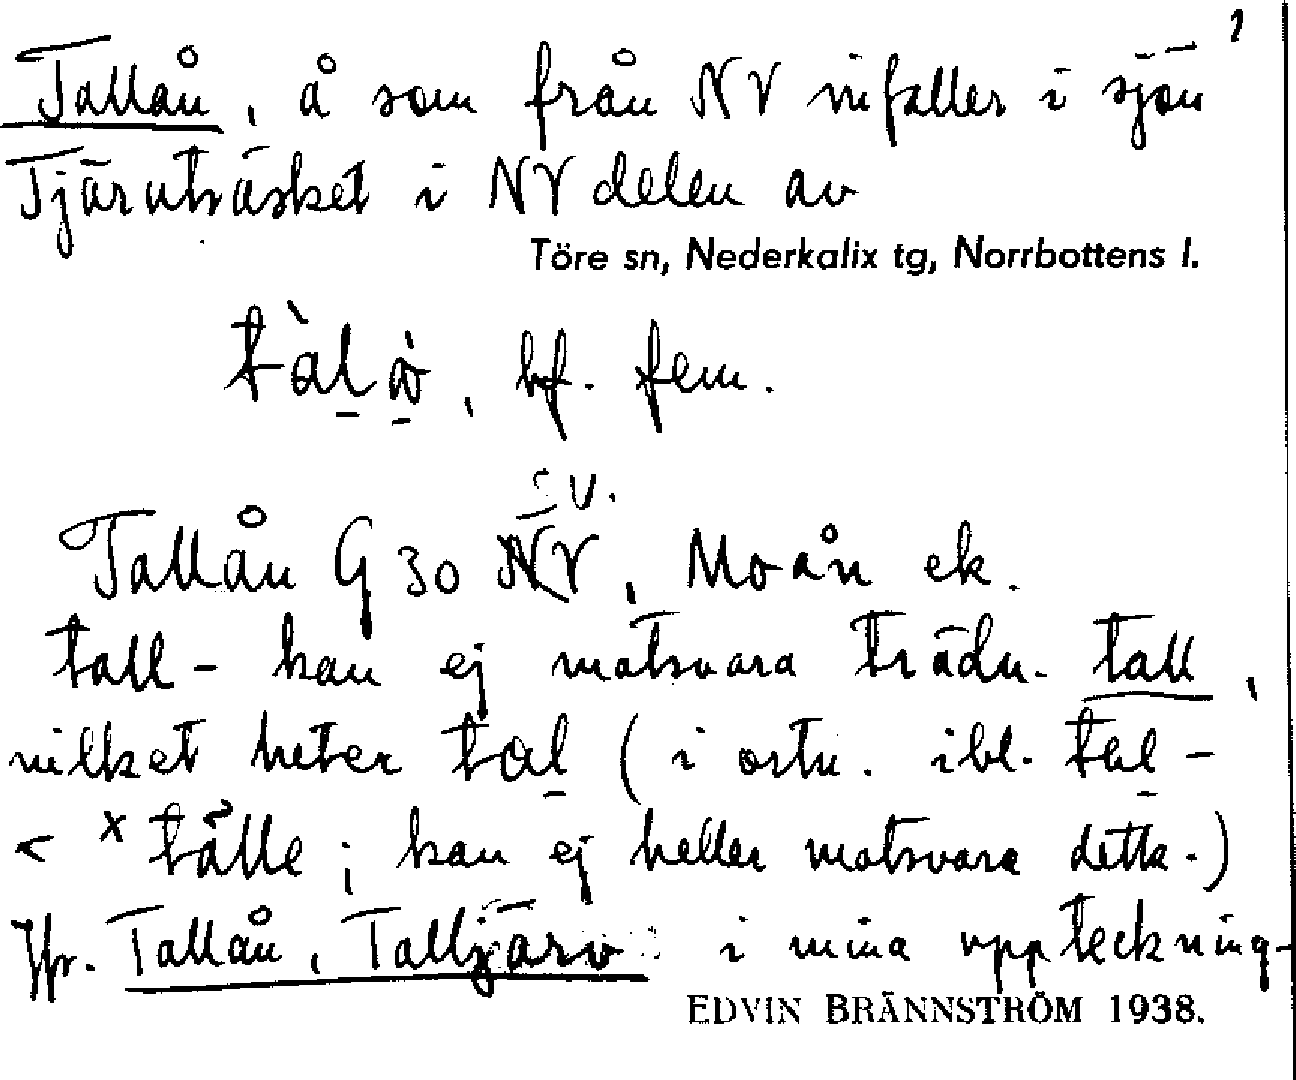 Tallån, å som från NV infaller i sjön
Tjärnträsket i NV delen av
Töre sn, Nederkalix tg, Norrbottens l.
bf. fem.
SV.
Tallån G 30 NV, Moån ek.
tall- kan ej motsvara trädn. tall,
vilket heter tal (i ortn. ibl. tal-
< ˣtälle; kan ej heller motsvara detta.)
Jfr. Tallån, Talljärv i mina uppteckning-
EDVIN BRÄNNSTRÖM 1938.